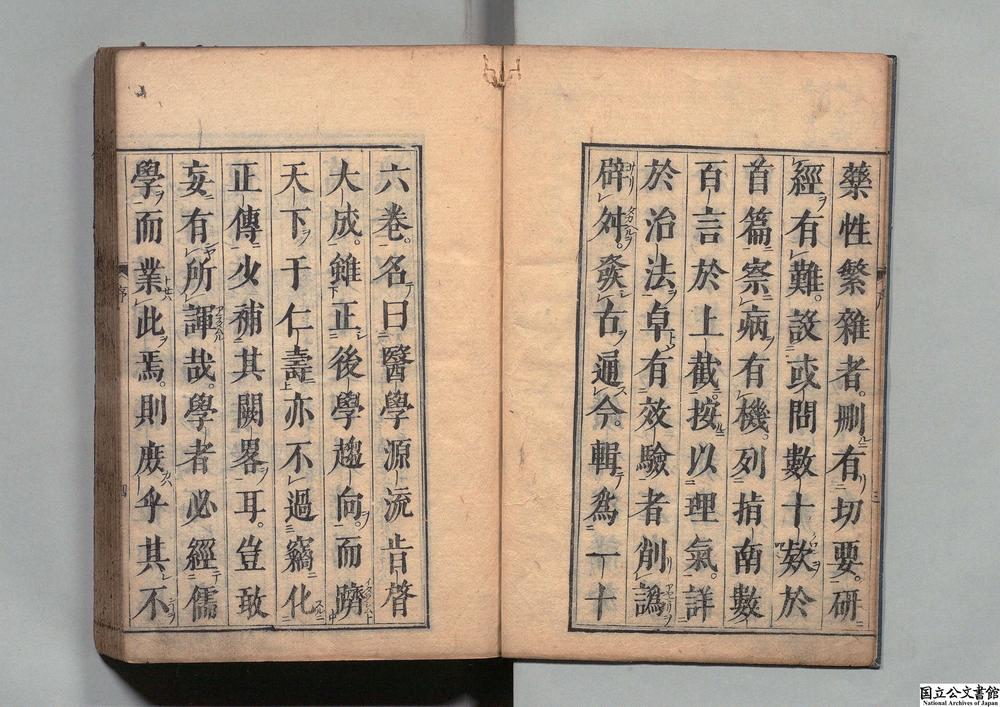 藥性繁雜者。刪有切要。研
經有難。設或問數十欵於
首篇。察病有機。列指南數
百言於上截。按以理氣。詳
於治法。卓有效驗者。削譌
辟舛。發古通今。輯爲一十
六卷。名曰醫學源流肯綮
大成。雖正後學趨向。而躋
天下于仁壽。亦不過竊化
正傳。少補其闕畧耳。豈敢
妄有所諢哉。學者必經儒
學而業此焉。則庶乎其不
序
三
序
四
国立公文書館
National Archives of Japan